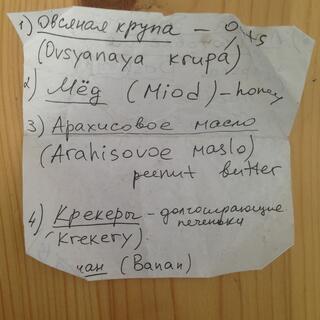 1) Овсяная крупа - Oats
(Ovsyanaya krupa)
2) Мёд (Miod) - honey
3) Арахисовое масло
(Arahisovoe maslo)
peenut butter
4) Крекеры - долгоиграющие
печеньки
(Krekery)
(Banan)